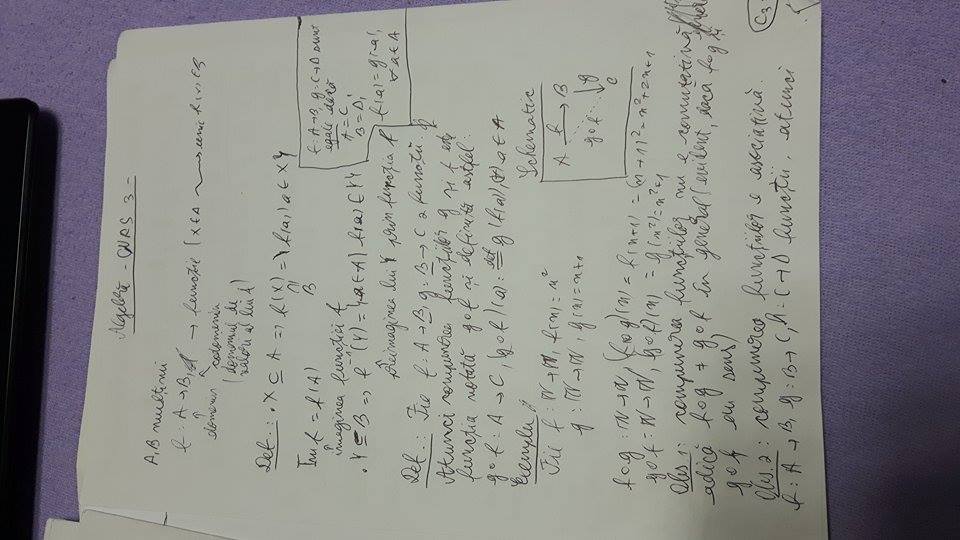 Algebră - CURS 3 -
A, B mulțimi
f: A → B, → funcție (x∈A ⟿ unic f(x)∈B
domeniu codomeniu
(domeniul de
valori al lui f)
f: A→B, g: C→D sunt
egale dacă
A = C
B = D,
f(a) = g(a),
∀a∈A
Def.: • X ⊆ A => f(X) = {f(a) | a ∈ X}
B
Im f = f(A)
imaginea funcției f
• Y ⊆ B => f⁻¹(Y) = {a∈A | f(a) ∈ Y}
preimaginea lui Y prin funcția f
Def.: Fie f: A→B, g: B→C 2 funcții
Atunci compunerea funcțiilor g și f este
funcția notată g∘f și definită astfel:
g∘f: A → C, (g∘f)(a) := g(f(a)), (∀) a∈A
def
Exemplu:
Schematic
A f→ B
g∘f ↓g
C
Fie f: ℕ→ℕ, f(n) = n²
g: ℕ→ℕ, g(n) = n+1
f∘g: ℕ→ℕ, (f∘g)(n) = f(n+1) = (n+1)² = n²+2n+1
g∘f = ℕ→ℕ, (g∘f)(n) = g(n²) = n²+1
Obs. 1: compunerea funcțiilor nu e comutativă
adică f∘g ≠ g∘f în general (evident, dacă f∘g și
g∘f au sens)
Obs. 2: compunerea funcțiilor e asociativă
f: A→B, g: B→C, h: C→D funcții, atunci
C3